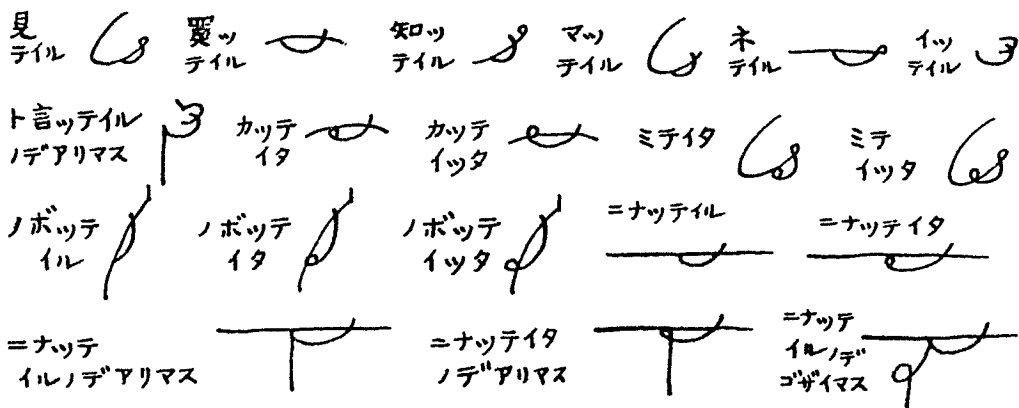 見テイル
買ッテイル
知ッテイル
マッテイル
ネテイル
イッテイル
ト言ッテイルノデアリマス
カッテイタ
カッテイッタ
ミテイタ
ミテイッタ
ノボッテイル
ノボッテイタ
ノボッテイッタ
ニナッテイル
ニナッテイタ
ニナッテイルノデアリマス
ニナッテイタノデアリマス
ニナッテイルノデゴザイマス